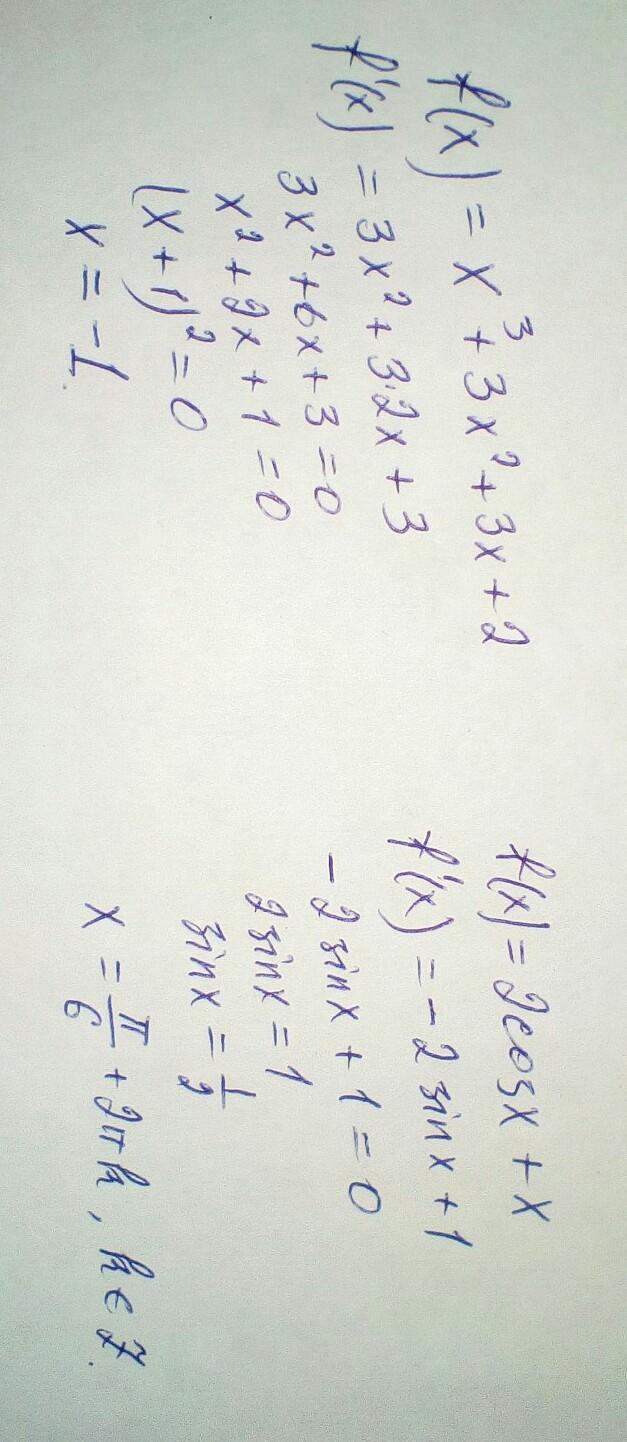 f(x) = x³ + 3x² + 3x + 2
f'(x) = 3x² + 3·2x + 3
3x² + 6x + 3 = 0
x² + 2x + 1 = 0
(x + 1)² = 0
x = -1.
f(x) = 2cosx + x
f'(x) = -2 sinx + 1
-2 sinx + 1 = 0
2 sinx = 1
sinx = 1/2
x = π/6 + 2πk, k ∈ Z.